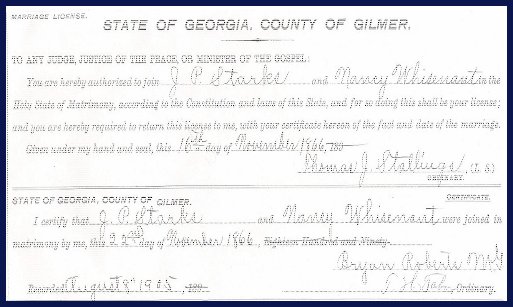 MARRIAGE LICENSE.
STATE OF GEORGIA, COUNTY OF GILMER.
TO ANY JUDGE, JUSTICE OF THE PEACE, OR MINISTER OF THE GOSPEL:
You are hereby authorized to join J P Starks and Nancy Whisenaut in the
Holy State of Matrimony, according to the Constitution and laws of this State, and for so doing this shall be your license;
and you are hereby required to return this license to me, with your certificate hereon of the fact and date of the marriage.
Given under my hand and seal, this 16th day of November 1866, 189
Thomas J. Stallings (L. S.)
ORDINARY.
STATE OF GEORGIA, COUNTY OF GILMER. CERTIFICATE.
I certify that J. P. Starks and Nancy Whisenaut were joined in
matrimony by me, this 22nd day of November 1866, Eighteen Hundred and Ninety
Bryan Roberts M.G
Recorded August 8" 1905, 189 Ordinary.